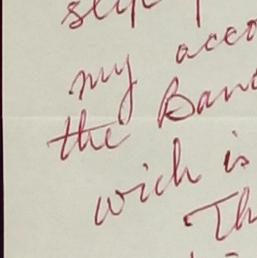 slip
my acco
the Ban
wich is
Th